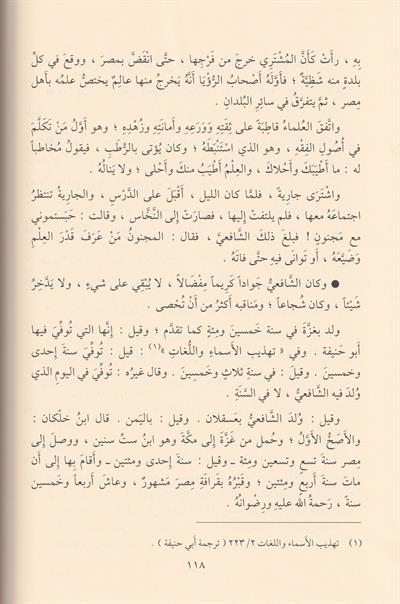 بِهِ ، رأَتْ كَأَنَّ المُشْتَرِي خرجَ من فَرْجِها ، حتَّى انْقَضَّ بمصرَ ، ووقعَ في كلِّ
بلدةٍ منه شَظِيَّةٌ ؛ فأوَّلَهُ أَصْحابُ الرُّؤْيا أَنَّهُ يَخرجُ منها عالِمٌ يختصُّ علمُه بأَهلِ
مِصر ، ثمَّ يتفرَّقُ في سائِرِ البُلدانِ .
واتَّفقَ العُلماءُ قاطِبَةً على ثِقَتِهِ وَوَرَعِهِ وأَمانَتِهِ وزُهْدِهِ ؛ وهو أَوَّلُ مَنْ تَكَلَّمَ
في أُصُولِ الفِقْهِ ، وهو الذي اسْتَنْبَطَهُ ؛ وكان يُؤتى بالرُّطَبِ ، فيقولُ مُخاطباً
له : ما أَطْيَبَكَ وأَحْلاكَ ، والعِلْمُ أَطْيَبُ منكَ وأَحْلى ؛ ولا يَنالُهُ .
واشْتَرى جاريةً ، فلمَّا كان الليل ، أَقْبَلَ على الدَّرْسِ ، والجاريةُ تنتظرُ
اجتماعَهُ معها ، فلم يلتفتْ إِليها ، فصارَتْ إِلى النَّخَّاسِ ، وقالت : حَبَستموني
مع مَجنونٍ ! فبلغَ ذلكَ الشَّافعيَّ ، فقال : المجنونُ مَنْ عَرَفَ قَدْرَ العِلْمِ
وضَيَّعَهُ ، أو تَوانَى فيهِ حتَّى فاتَهُ .
● وكان الشَّافعيُّ جَواداً كَرِيماً مِفْضَالاً ، لا يُبْقِي على شيءٍ ، ولا يَدَّخِرُ
شَيْئاً ، وكان شُجاعاً ؛ ومَناقبه أَكثرُ من أَنْ تُحْصى .
ولد بغَزَّةَ في سنة خَمسينَ ومِئةٍ كما تقدَّم ؛ وقيل : إنَّها التي تُوفِّيَ فيها
أبو حَنيفة . وفي « تهذيب الأسماءِ واللُّغاتِ »(١) : قيل : تُوفِّيَ سنةَ إِحدى
وخمسين . وقيلَ : في سنةِ ثلاثٍ وخَمسِينَ . وقال غيرُه : تُوفِّيَ في اليومِ الذي
وُلدَ فيه الشَّافعيُّ ، لا في السَّنَةِ .
وقيل : وُلدَ الشَّافعيُّ بعَسقلان . وقيل : باليَمن . قال ابنُ خلِّكان :
والأَصَحُّ الأَوَّلُ ؛ وحُمل من غَزَّةَ إِلى مكَّةَ وهو ابنُ ستِّ سنين ، ووصلَ إِلى
مِصر سنةَ تسعٍ وتسعين ومِئة ــ وقيل : سنةَ إِحدى ومئتين ــ وأَقامَ بِها إِلى أَن
ماتَ سنةَ أَربعٍ ومِئتين ؛ وقَبْرُهُ بقَرافةِ مِصرَ مَشهورٌ ، وعاش أَربعاً وخَمسين
سنةً ، رَحمةُ اللهِ عليهِ ورِضْوانُهُ .
(١) تهذيب الأسماء واللغات ٢/ ٢٢٣ ( ترجمة أبي حنيفة ) .
١١٨